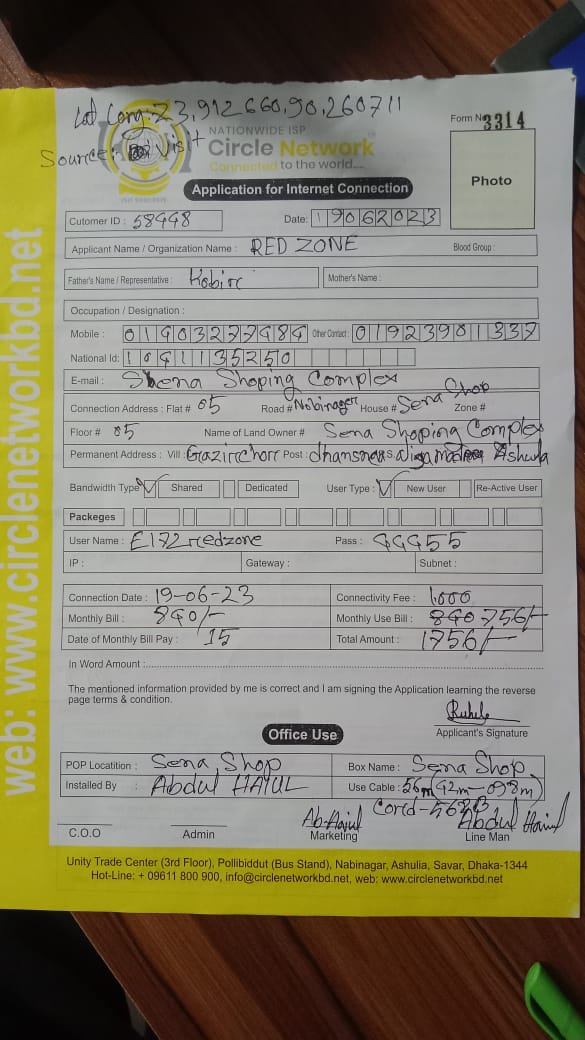 Lat Long: 23.912660,90.260711
Source: Visit
Form No 3314
NATIONWIDE ISP
Circle Network
Connected to the world....
Photo
Application for Internet Connection
Cutomer ID : 58998 Date: 19062023
Applicant Name / Organization Name : RED ZONE Blood Group :
Father's Name / Representative : Kobir Mother's Name :
Occupation / Designation :
Mobile : Other Contact : 01923901337
National Id:
E-mail : Shena Shoping Complex
Connection Address : Flat # 05 Road # Nobinager House # Sena Shop Zone #
Floor # 05 Name of Land Owner # Sena Shoping Complex
Permanent Address : Vill : Post :
Bandwidth Type Shared Dedicated User Type : New User Re-Active User
Packeges
User Name : E172redzone Pass : 99955
IP : Gateway : Subnet :
Connection Date : 19-06-23 Connectivity Fee : 1000
Monthly Bill : 840/- Monthly Use Bill : 756/-
Date of Monthly Bill Pay : 15 Total Amount : 1756/-
In Word Amount :
The mentioned information provided by me is correct and I am signing the Application learning the reverse
page terms & condition.
Applicant's Signature
Office Use
POP Locatition : Sena Shop Box Name : Sena Shop
Installed By : Abdul HAIUL Use Cable : 56m (42m-098m)
C.O.O Admin Marketing Line Man
Unity Trade Center (3rd Floor), Pollibiddut (Bus Stand), Nabinagar, Ashulia, Savar, Dhaka-1344
Hot-Line: + 09611 800 900, info@circlenetworkbd.net, web: www.circlenetworkbd.net
web: www.circlenetworkbd.net